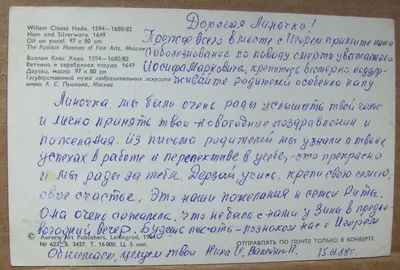 Willem Claesz Heda, 1594—1680/82
Ham and Silverware. 1649
Oil on panel. 97 × 80 cm
The Pushkin Museum of Fine Arts, Moscow
Виллем Клас Хеда. 1594—1680/82
Ветчина и серебряная посуда. 1649
Дерево, масло. 97 × 80 см
Государственный музей изобразительных искусств
имени А. С. Пушкина, Москва
Дорогая Линочка!
Прежде всего вместе с Игорем примите наши
соболезнование по поводу смерти уважаемого
Иосифа Марковича, крепитесь всемерно поддер-
живайте родителей особенно папу.
Линочка, мы были очень рады услышать твой голос
и лично принять твои новогодние поздравления и
пожелания. Из письма родителей мы узнали о твоих
успехах в работе и перспективе в учебе, – это прекрасно
и мы рады за тебя. Дерзай, учись, крепи свою семью,
свое счастье. Это наши пожелания и семьи Риты.
Она очень сожалела, что не была с нами у Зины в предно-
вогодний вечер. Будешь писать – познакомь нас с Игорем
Обнимаем, целуем твои
15.01.85г.
© Aurora Art Publishers, Leningrad, 1984
№ 623. 3-3427. Т. 16 000. Ц. 5 коп.
ОТПРАВЛЯТЬ ПО ПОЧТЕ ТОЛЬКО В КОНВЕРТЕ